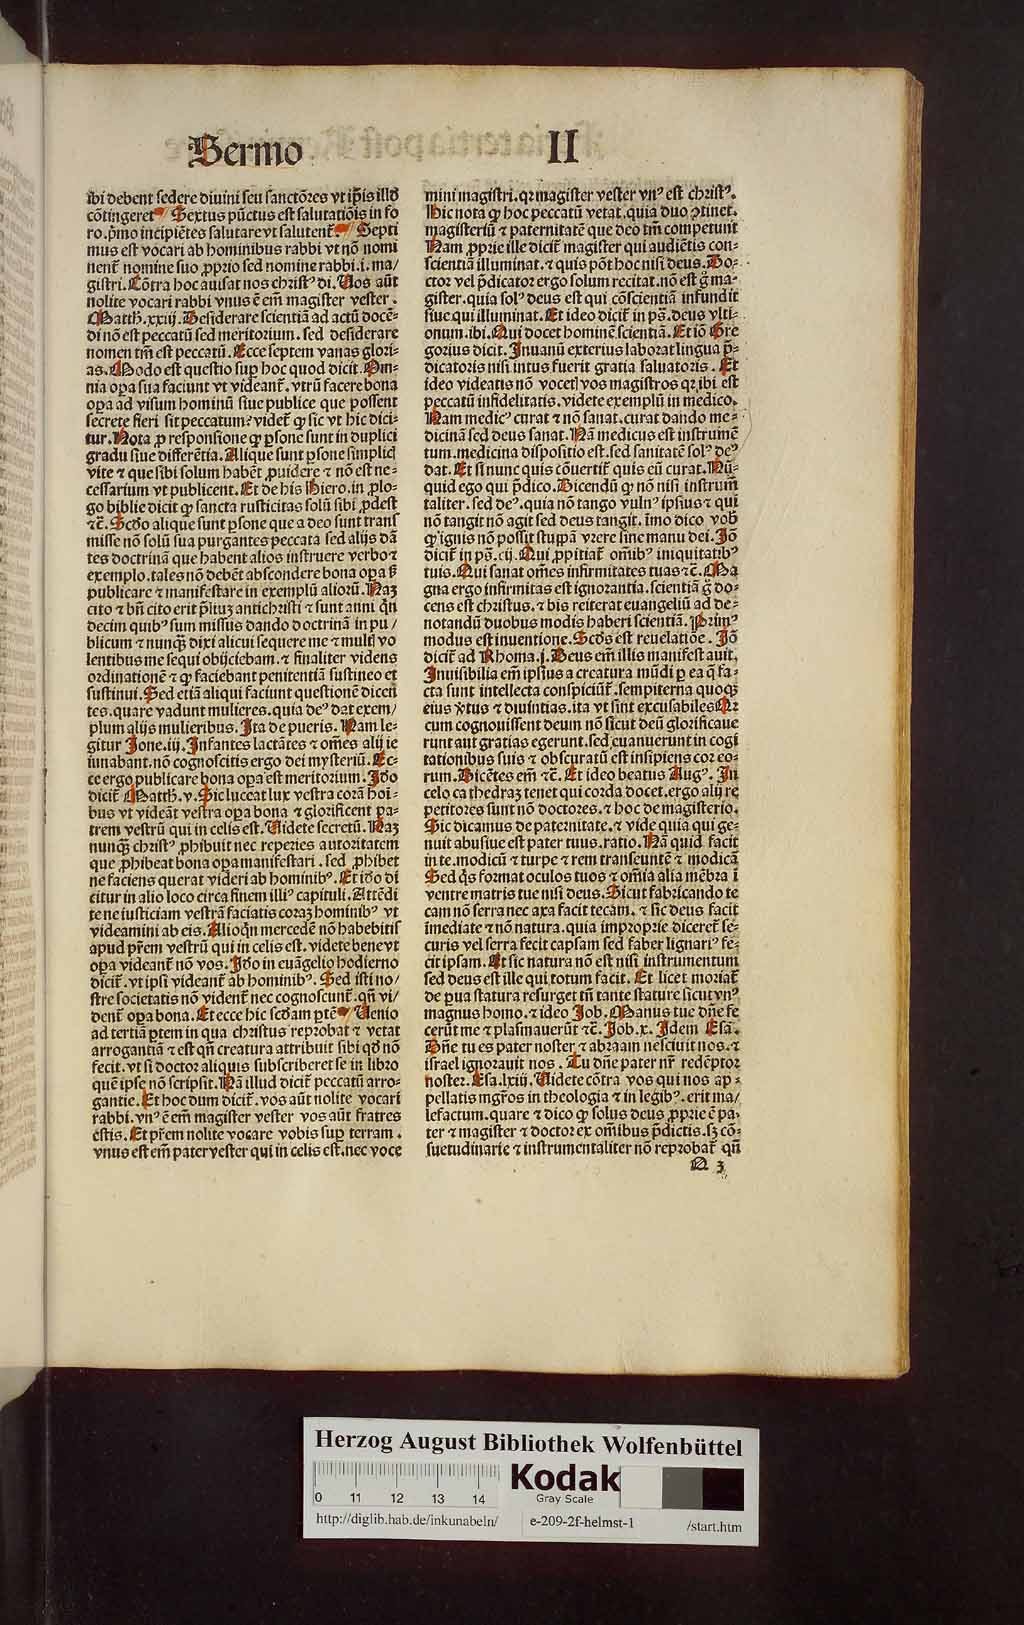 Sermo II
ibi debent sedere diuini seu sanctōres vt ip̄is illď
cōtingeret Sextus pūctus est salutatiōis in fo
ro. p̄mo incipiētes salutare vt salutent᷑. Septi
mus est vocari ab hominibus rabbi vt nō nomi
nent᷑ nomine suo ꝓprio sed nomine rabbi .i. ma/
gistri. Cōtra hoc auisat nos christꝰ di. Uos aūt
nolite vocari rabbi vnus ē em̄ magister vester .
Matth̄. xxiij. Desiderare scientiā ad actū docē⸗
di nō est peccatū sed meritorium. sed desiderare
nomen tm̄ est peccatū. Ecce septem vanas glori⸗
as. Modo est questio suꝑ hoc quod dicit. Om⸗
nia oꝑa sua faciunt vt videant᷑. vtrū facere bona
oꝑa ad visum hominū siue publice que possent
secrete fieri sit peccatum? videt᷑ ꝙ sic vt hic dici⸗
tur. Nota ꝓ responsione ꝙ ꝑsone sunt in duplici
gradu siue differētia. Alique sunt ꝑsone simplicꝭ
vite ⁊ que sibi solum habēt ꝓuidere ⁊ nō est ne⸗
cessarium vt publicent. Et de his Hiero. in ꝓlo⸗
go biblie dicit ꝙ sancta rusticitas solū sibi ꝓdest
⁊c̄. Scďo alique sunt ꝑsone que a deo sunt trans
misse nō solū sua purgantes peccata sed alijs dā
tes doctrinā que habent alios instruere verbo ⁊
exemplo. tales nō debēt abscondere bona oꝑa s
publicare ⁊ manifestare in exemplū aliorū. Naꝫ
cito ⁊ bn̄ cito erit p̄lituꝫ antichristi ⁊ sunt anni qn̄
decim quibꝰ sum missus dando doctrinā in pu /
blicum ⁊ nunqꝫ dixi alicui sequere me ⁊ multꝭ vo
lentibus me sequi obijciebam. ⁊ finaliter videns
ordinationē ⁊ ꝙ faciebant penitentiā sustineo et
sustinui. Sed etiā aliqui faciunt questionē dicen
tes. quare vadunt mulieres. quia deꝰ dat exem/
plum alijs mulieribus. Ita de pueris. Nam le⸗
gitur Jone. iij. Infantes lactātes ⁊ om̄es alij ie
iunabant. nō cognoscitis ergo dei mysteriū. Ec⸗
ce ergo publicare bona oꝑa est meritorium. Iďo
dicit᷑ Matth̄. v. Sic luceat lux vestra corā hoi⸗
bus vt videāt vestra oꝑa bona ⁊ glorificent pa⸗
trem vestrū qui in celis est. Uidete secretū. Naꝫ
nunqꝫ christꝰ ꝓhibuit nec reperies autoritatem
que ꝓhibeat bona oꝑa manifestari . sed ꝓhibet
ne faciens querat videri ab hominibꝰ. Et iďo di
citur in alio loco circa finem illiꝰ capituli. Attēdi
te ne iusticiam vestrā faciatis coraꝫ hominibꝰ vt
videamini ab eis. Alioqn̄ mercedē nō habebitis
apud pr̄em vestrū qui in celis est. videte bene vt
oꝑa videant᷑ nō vos. Iďo in euāgelio hodierno
dicit᷑. vt ipsi videant᷑ ab hominibꝰ. Sed isti no/
stre societatis nō vident᷑ nec cognoscunt᷑. qn̄ vi/
dent᷑ oꝑa bona. Et ecce hic scďam ꝑtē Uenio
ad tertiā ꝑtem in qua christus reprobat ⁊ vetat
arrogantiā ⁊ est qn̄ creatura attribuit sibi qď nō
fecit. vt si doctor aliquis subscriberet se in libro
quē ipse nō scripsit. Nā illud dicit᷑ peccatū arro⸗
gantie. Et hoc dum dicit᷑. vos aūt nolite vocari
rabbi. vnꝰ ē em̄ magister vester vos aūt fratres
estis. Et pr̄em nolite vocare vobis suꝑ terram .
vnus est em̄ pater vester qui in celis est. nec voce
mini magistri. qꝛ magister vester vnꝰ est christꝰ.
Hic nota ꝙ hoc peccatū vetat. quia duo ꝯtinet.
magisteriū ⁊ paternitatē que deo tm̄ competunt
Nam ꝓprie ille dicit᷑ magister qui audiētis con⸗
scientiā illuminat. ⁊ quis pōt hoc nisi deus. Do⸗
ctor vel p̄dicator ergo solum recitat. nō est g̊ ma⸗
gister. quia solꝰ deus est qui cōscientiā infundit
siue qui illuminat. Et ideo dicit᷑ in ps̄. deus vlti⸗
onum. ibi. Qui docet hominē scientiā. Et iō Gre
gorius dicit. Inuanū exterius laborat lingua p̄⸗
dicatoris nisi intus fuerit gratia saluatoris . Et
ideo videatis nō vocetꝭ vos magistros qꝛ ibi est
peccatū infidelitatis. videte exemplū in medico.
Nam medicꝰ curat ⁊ nō sanat. curat dando me⸗
dicinā sed deus sanat. Nā medicus est instrumē
tum. medicina dispositio est. sed sanitatē solꝰ deꝰ
dat. Et si nunc quis cōuertit᷑ quis eū curat. Nū⸗
quid ego qui p̄dico. Dicendū ꝙ nō nisi instrum̄
taliter. sed deꝰ. quia nō tango vulnꝰ ipsius ⁊ qui
nō tangit nō agit sed deus tangit. īmo dico vob̄
ꝙ ignis nō possit stuppā vrere sine manu dei. Iō
dicit᷑ in ps̄. cij. Qui ꝓpitiat᷑ om̄ibꝰ iniquitatibꝰ
tuis. Qui sanat om̄es infirmitates tuas ⁊c̄. Ma
gna ergo infirmitas est ignorantia. scientiā g̊ do⸗
cens est christus. ⁊ bis reiterat euangeliū ad de⸗
notandū duobus modis haberi scientiā. Primꝰ
modus est inuentione. Scďs est reuelatiōe . Iō
dicit᷑ ad Rhoma. j. Deus em̄ illis manifestauit.
Inuisibilia em̄ ipsius a creatura mūdi ꝑ ea q̄ fa⸗
cta sunt intellecta conspiciūt᷑. sempiterna quoqꝫ
eius v̄tus ⁊ diuinitas. ita vt sint excusabiles Qꝛ
cum cognouissent deum nō sicut deū glorificaue
runt aut gratias egerunt. sed euanuerunt in cogi
tationibus suis ⁊ obscuratū est insipiens cor eo⸗
rum. Dicētes em̄ ⁊c̄. Et ideo beatus Augꝰ. In
celo cathedraꝫ tenet qui corda docet. ergo alij re
petitores sunt nō doctores. ⁊ hoc de magisterio.
Sic dicamus de paternitate. ⁊ vide quia qui ge⸗
nuit abusiue est pater tuus. ratio. Nā quid facit
in te. modicū ⁊ turpe ⁊ rem transeuntē ⁊ modicā
Sed qͥs format oculos tuos ⁊ om̄ia alia mēbra ī
ventre matris tue nisi deus. Sicut fabricando te
cam nō serra nec axa facit tecam. ⁊ sic deus facit
īmediate ⁊ nō natura. quia improprie diceret᷑ se⸗
curis vel serra fecit capsam sed faber lignariꝰ fe⸗
cit ipsam. Et sic natura nō est nisi instrumentum
sed deus est ille qui totum facit. Et licet moriat᷑
de ꝑua statura resurget tn̄ tante stature sicut vnꝰ
magnus homo. ⁊ ideo Job. Manus tue dn̄e fe
cerūt me ⁊ plasmauerūt ⁊c̄. Job. x. Idem Esā.
Dn̄e tu es pater noster ⁊ abraam nesciuit nos. ⁊
israel ignorauit nos . Tu dn̄e pater nr̄ redēptor
noster. Esa. lxiij. Uidete cōtra vos qui nos ap⸗
pellatis mgr̄os in theologia ⁊ in legibꝰ. erit ma/
lefactum. quare ⁊ dico ꝙ solus deus ꝓprie ē pa⸗
ter ⁊ magister ⁊ doctor ex om̄ibus p̄dictis. sꝫ cō⸗
suetudinarie ⁊ instrumentaliter nō reprobat᷑ qn̄
Herzog August Bibliothek Wolfenbüttel
0 11 12 13 14
Kodak
Gray Scale
http://diglib.hab.de/inkunabeln/ e-209-2f-helmst-1 /start.htm